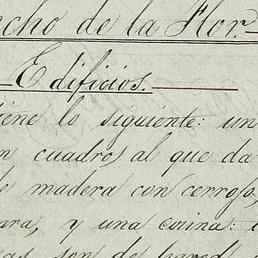 cho de la Flor.
Edificios.
iene lo siguiente: un
n cuadro, al que da
de madera con cerrojo,
ara, y una cocina:
as son de pared